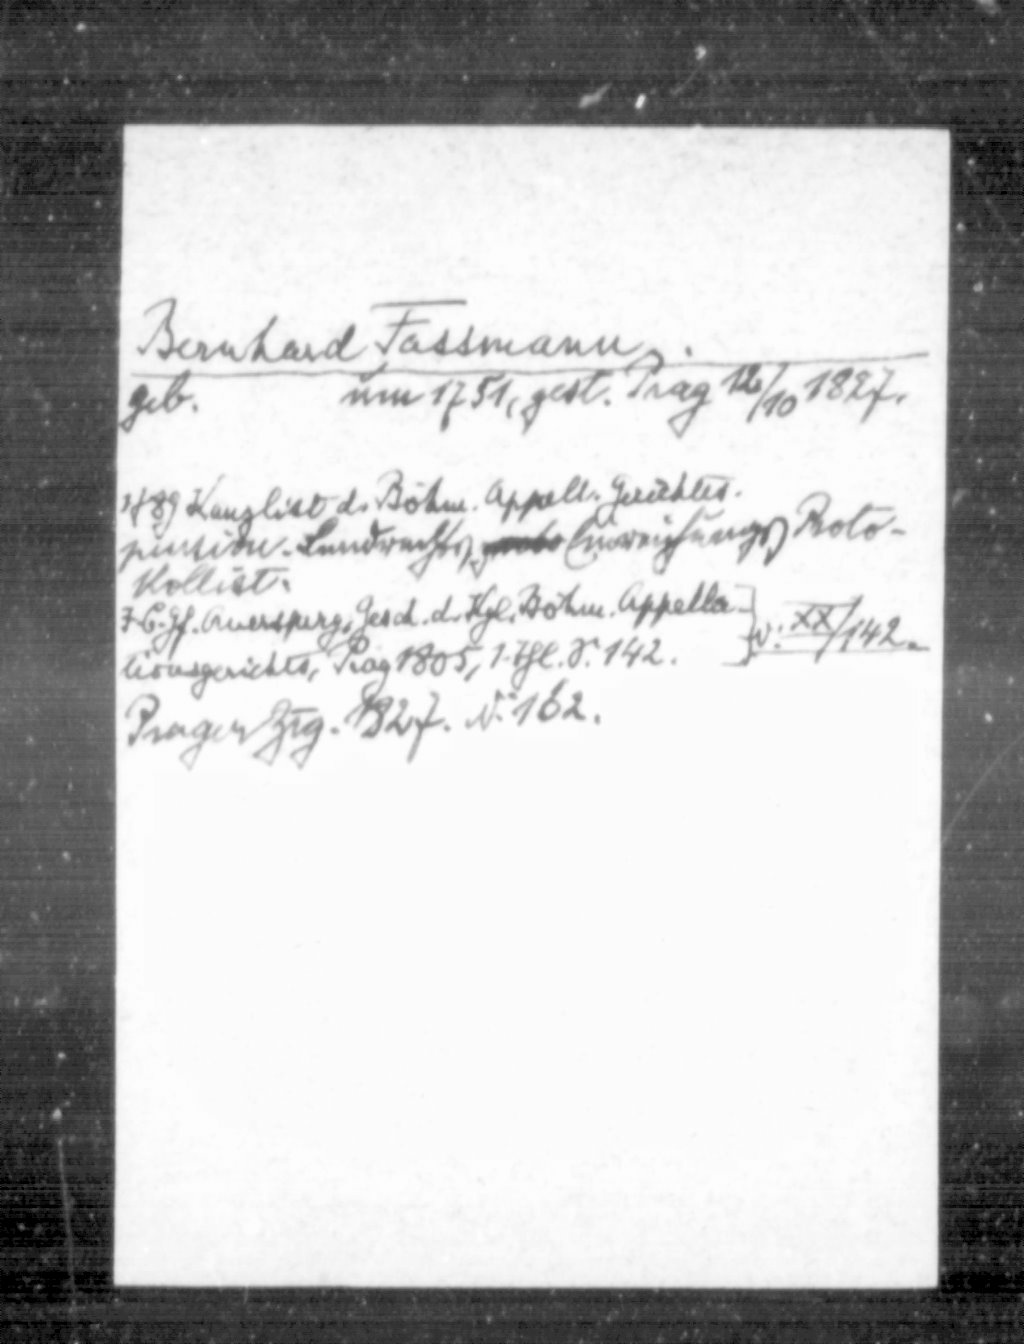 Bernhard Fassmann.
geb. um 1751, gest. Prag 12/10 1827.
1789 Kanzlist d. Böhm. Appell. Gerichtes.
pension. Landrechts Einreichungs Proto-
kollist.
J. C. Gf. Auersperg, Gesch. d. Kgl. Böhm. Appella-
tionsgerichts, Prag 1805, 1. Thl. S. 142. v. XX/142.
Prager Ztg. 1827. N. 162.